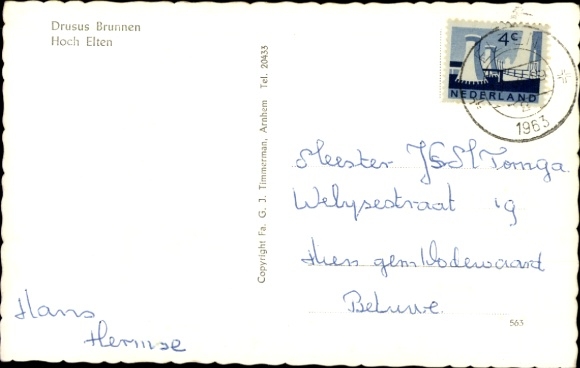 Drusus Brunnen
Hoch Elten
4c
NEDERLAND
1963
Copyright Fa. G. J. Timmerman, Arnhem Tel. 20433
Meester
Welysestraat 19
Hien gem Dodewaard
Betuwe.
563
Hans
Hermse